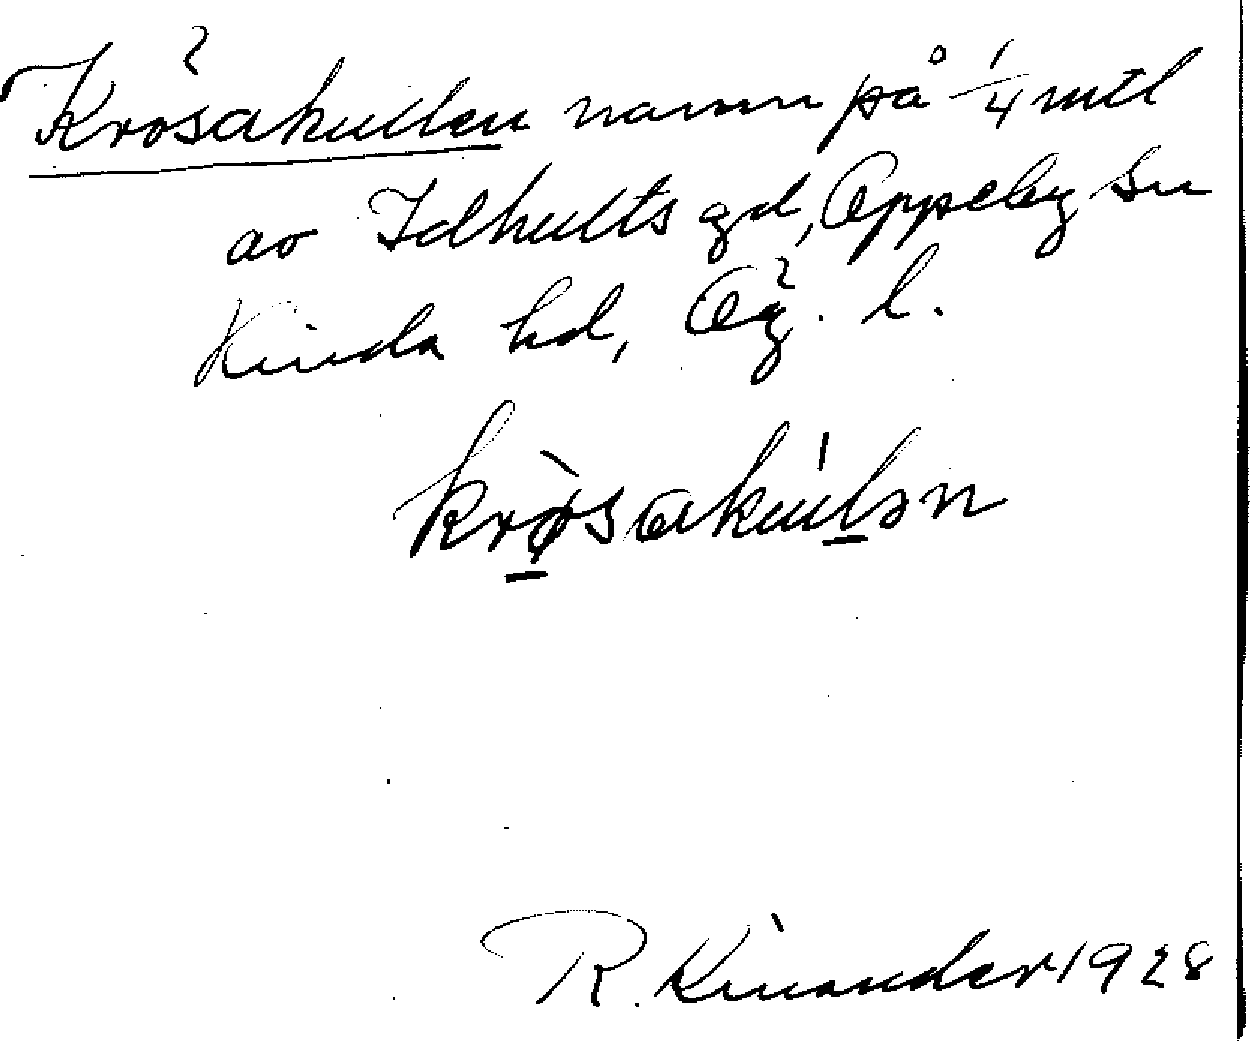 Krösakullen namn på 1/4 mtl
av Idhults gd, Oppeby sn
Kinda hd, Ög. l.
krø̀sakúlən
R. Kinander 1928